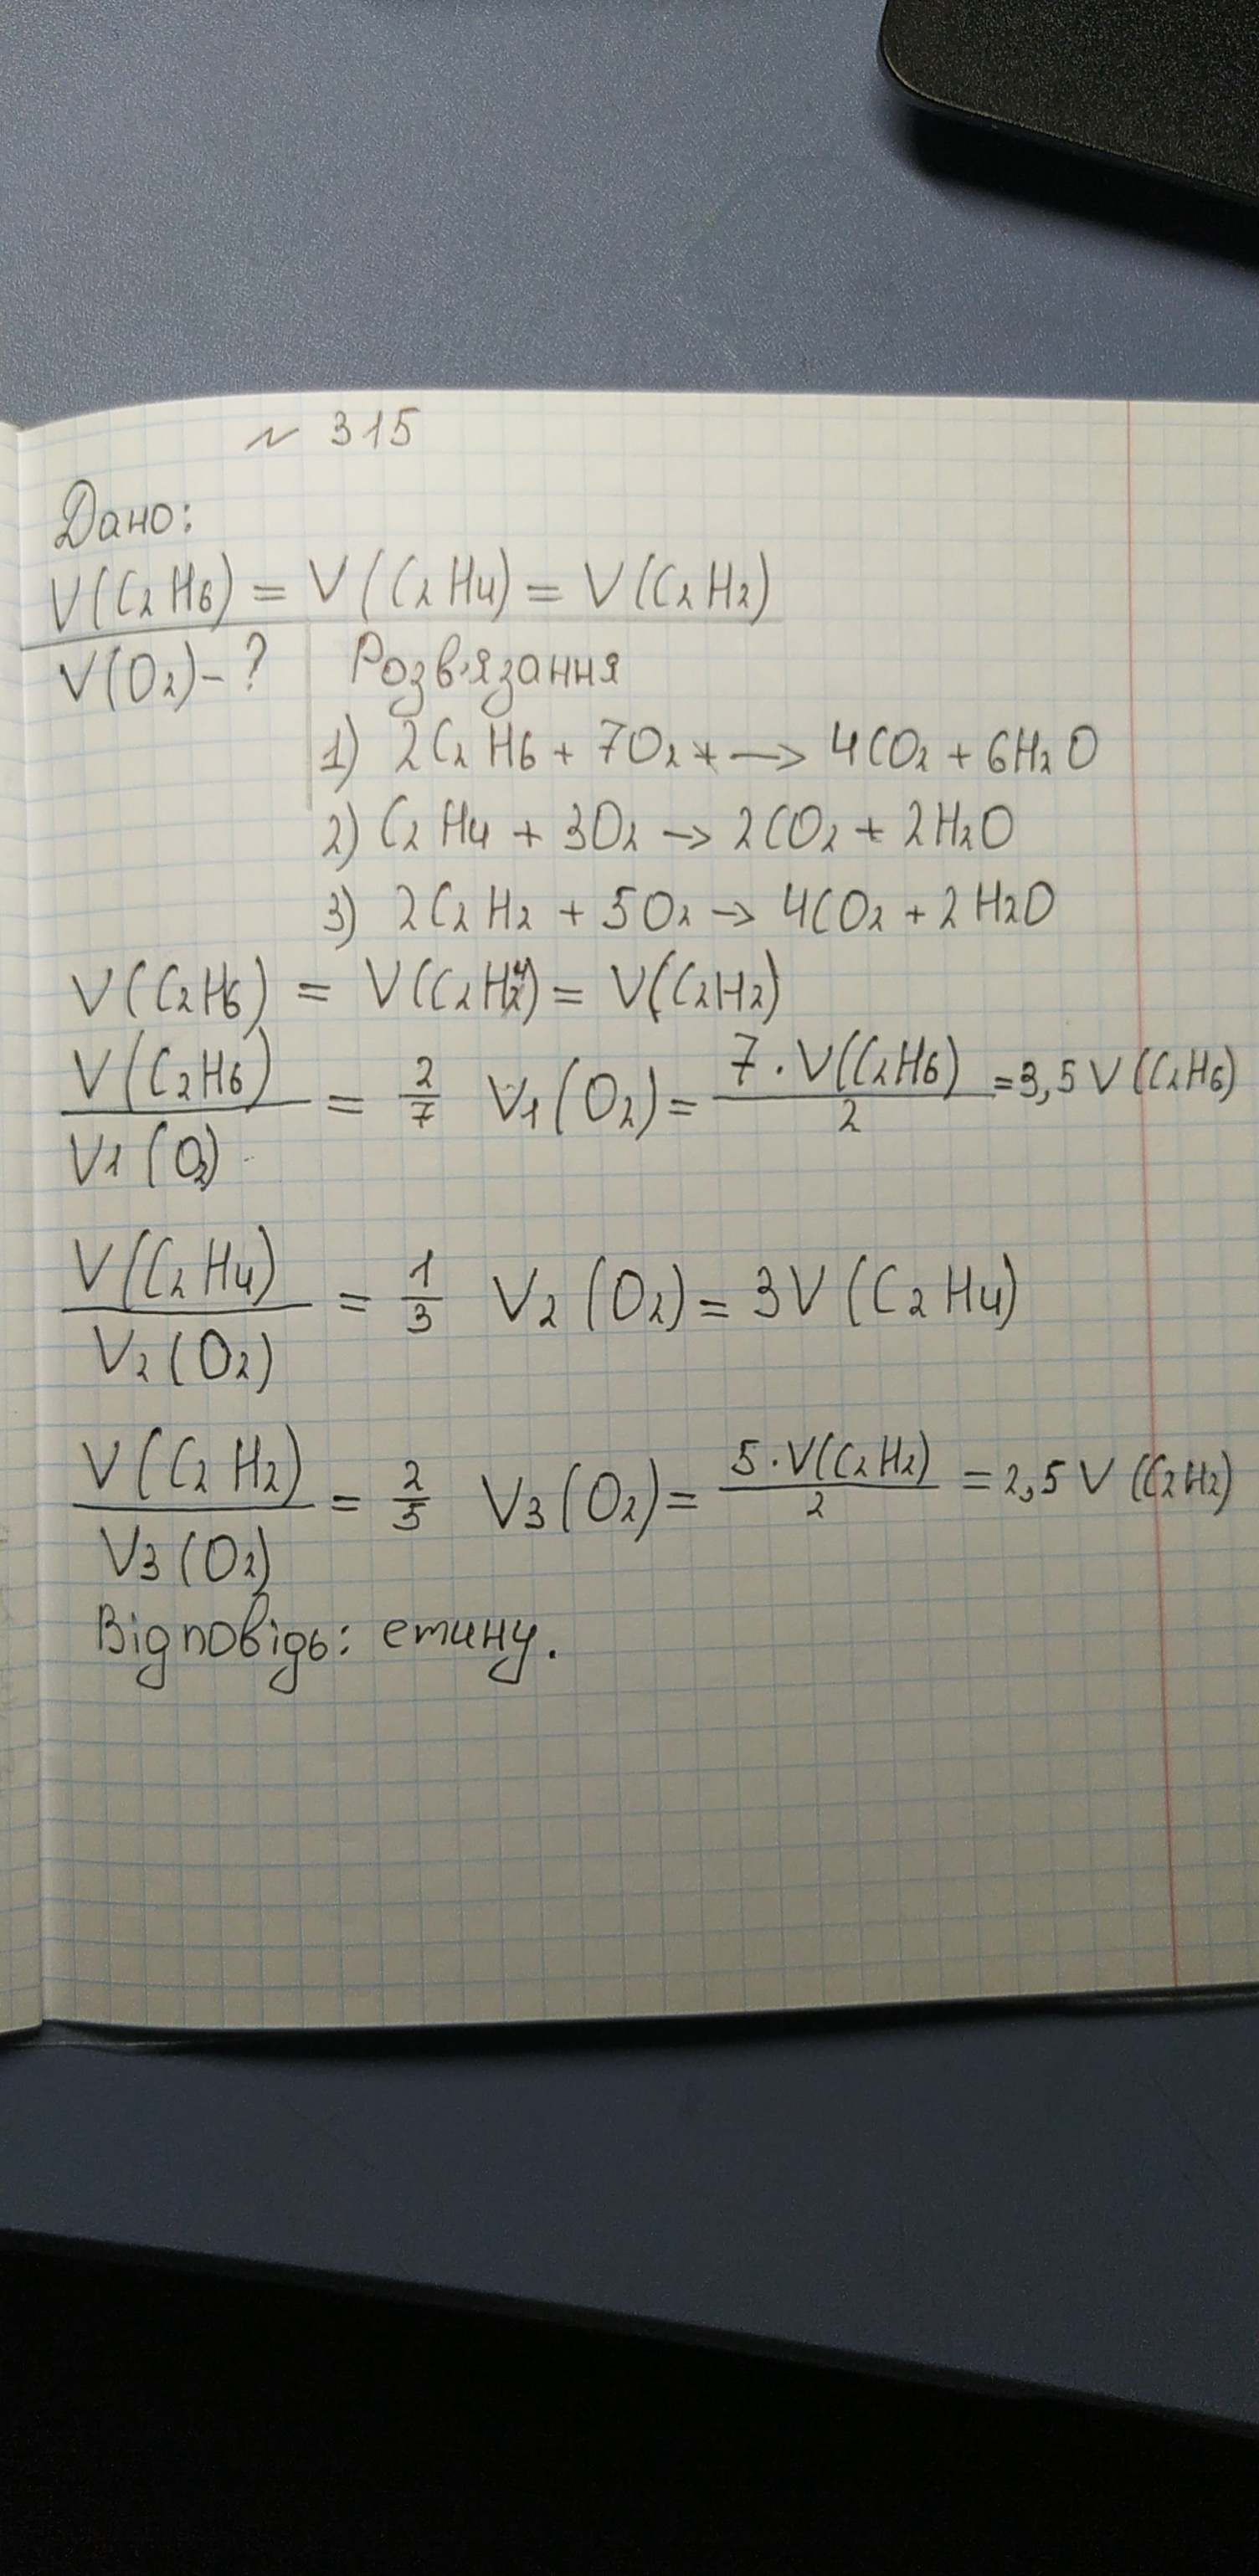 № 315
Дано:
V(C₂H₆) = V(C₂H₄) = V(C₂H₂)
V(O₂)-? Розв'язання
1) 2C₂H₆ + 7O₂ + → 4CO₂ + 6H₂O
2) C₂H₄ + 3O₂ → 2CO₂ + 2H₂O
3) 2C₂H₂ + 5O₂ → 4CO₂ + 2H₂O
V(C₂H₆) = V(C₂H₄) = V(C₂H₂)
V(C₂H₆)/V₁(O₂) = 2/7 V₁(O₂) = 7·V(C₂H₆)/2 = 3,5 V(C₂H₆)
V(C₂H₄)/V₂(O₂) = 1/3 V₂(O₂) = 3V(C₂H₄)
V(C₂H₂)/V₃(O₂) = 2/5 V₃(O₂) = 5·V(C₂H₂)/2 = 2,5 V(C₂H₂)
Відповідь: етину.